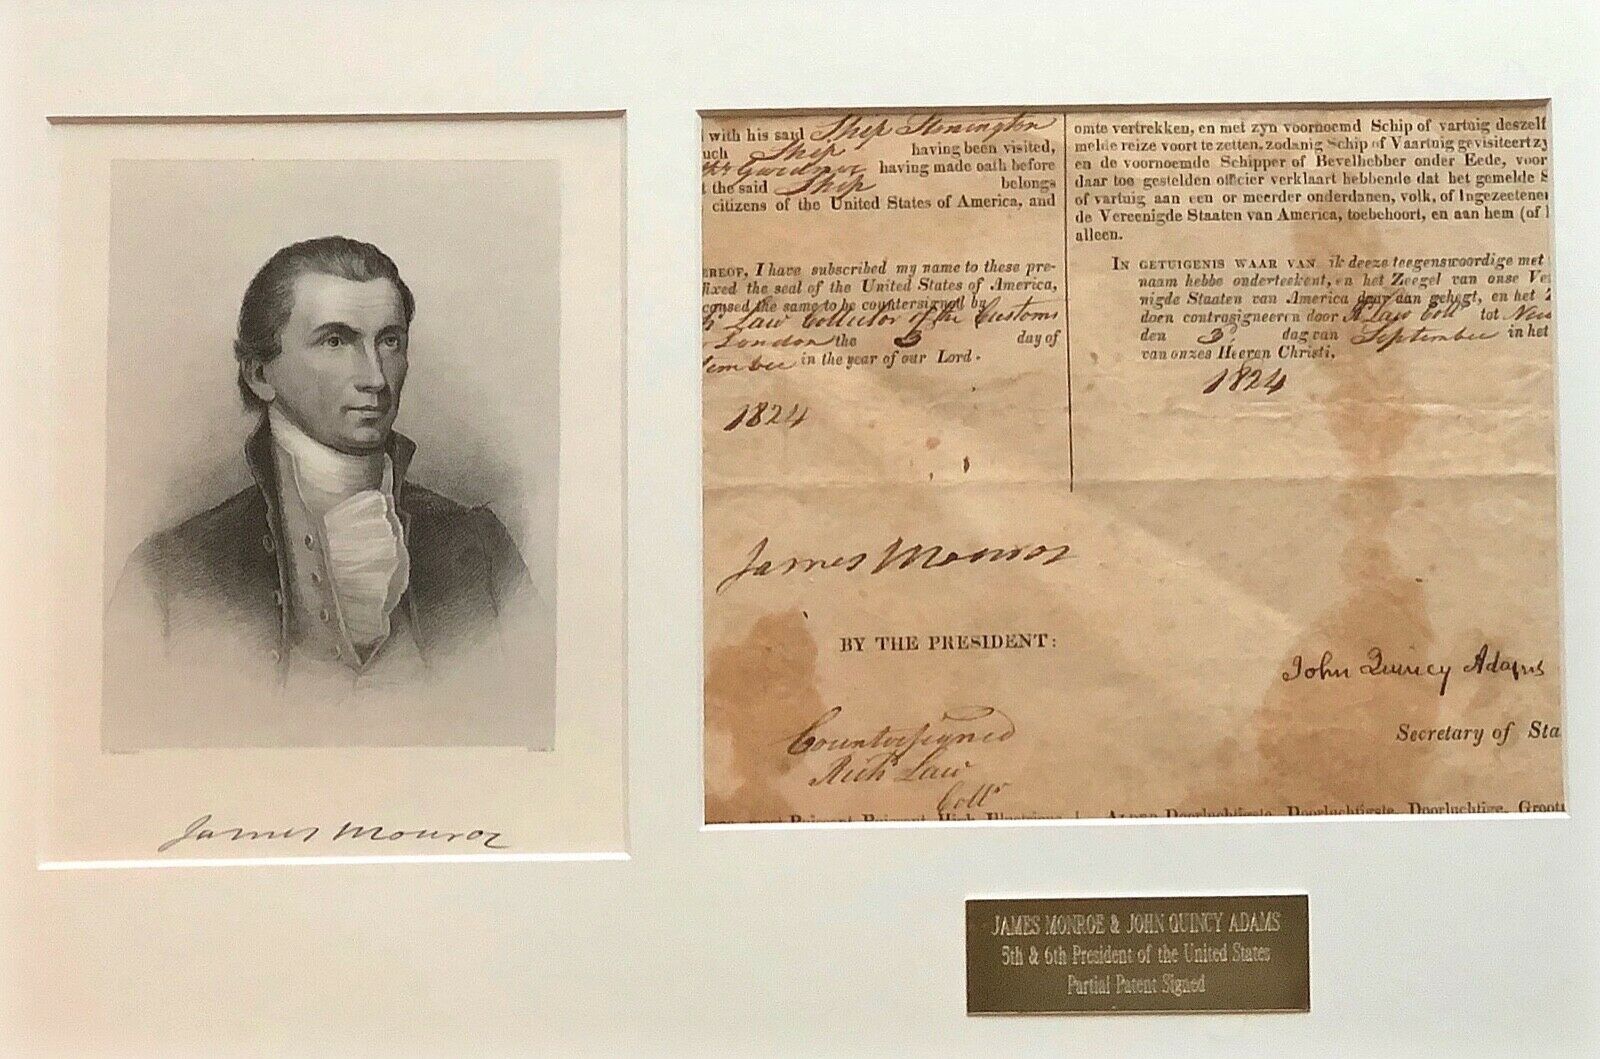 with his said Ship Stonington
uch Ship having been visited,
Gardner having made oath before
t the said Ship belongs
citizens of the United States of America, and
EREOF, I have subscribed my name to these pre-
fixed the seal of the United States of America,
caused the same to be countersigned by
Law Collector of the Customs
London the 3 day of
tember in the year of our Lord.
1824
omte vertrekken, en met zyn voornoemd Schip of vartuig deszelf
melde reize voort te zetten, zodanig Schip of Vaartuig gevisiteert zy
en de voornoemde Schipper of Bevelhebber onder Eede, voor
daar toe gestelden officier verklaart hebbende dat het gemelde S
of vartuig aan een or meerder onderdanen, volk, of Ingezetene
de Vereenigde Staaten van America, toebehoort, en aan hem (of
alleen.
IN GETUIGENIS WAAR VAN ik deeze teegenswoordige met
naam hebbe onderteekent, en het Zeegel van onse Ve
nigde Staaten van America daar aan gehegt, en het
doen contrasigneeren door R Law Coll tot New
den 3d dag van September in het
van onzes Heeren Christi,
1824
James Monroe
BY THE PRESIDENT:
John Quincy Adams
Secretary of Sta
Countersigned
Richd Law
Collr
James Monroe
JAMES MONROE & JOHN QUINCY ADAMS
5th & 6th President of the United States
Partial Patent Signed